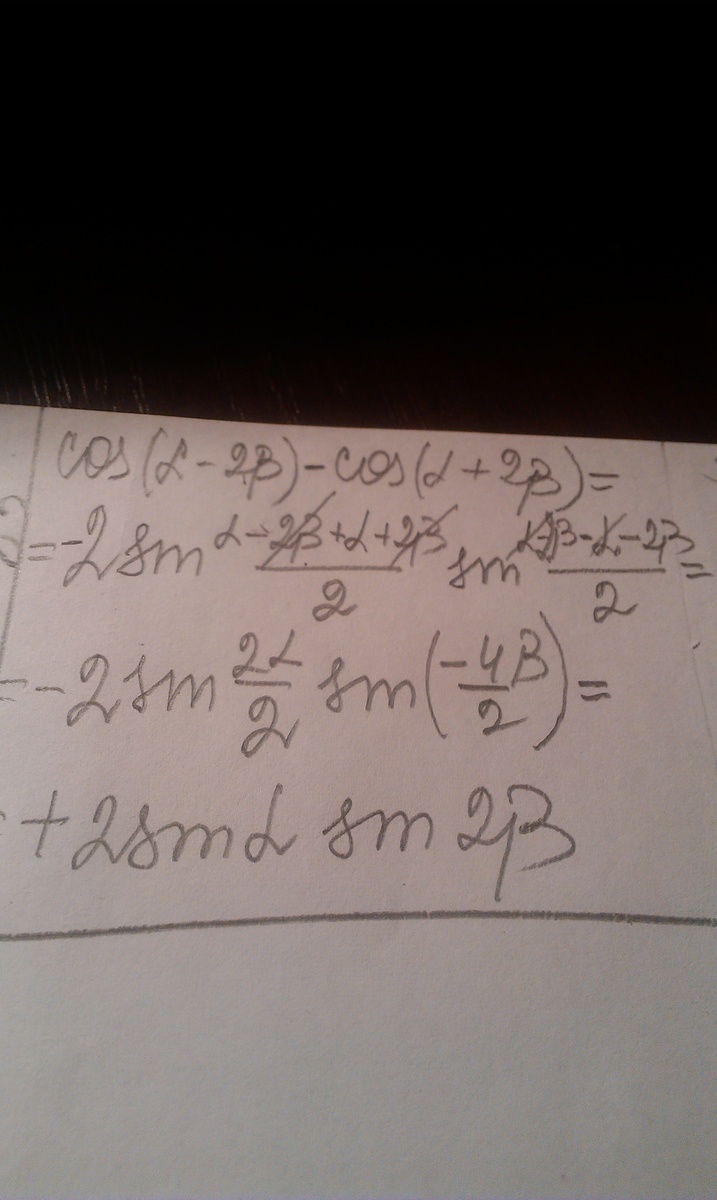 cos(α - 2β) - cos(α + 2β) =
= -2 sin (α - 2β + α + 2β)/2 sin (α - 2β - α - 2β)/2 =
= -2 sin 2α/2 sin(-4β/2) =
= +2 sin α sin 2β